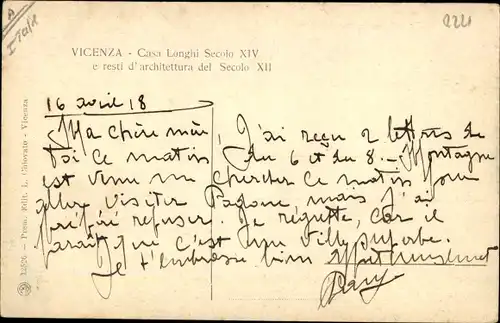 A
Italie
224
VICENZA - Casa Longhi Secolo XIV
e resti d'architettura del Secolo XII
16 avril 18
Ma chère mère, J'ai reçu 2 lettres de
toi ce matin du 6 et du 8. - Montagne
est venu me chercher ce matin pour
aller visiter Padoue mais j'ai
préféré refuser. Je regrette, car il
paraît que c'est une ville superbe.
Je t'embrasse bien
12526 - Prem. Edit. L. Chiovato - Vicenza